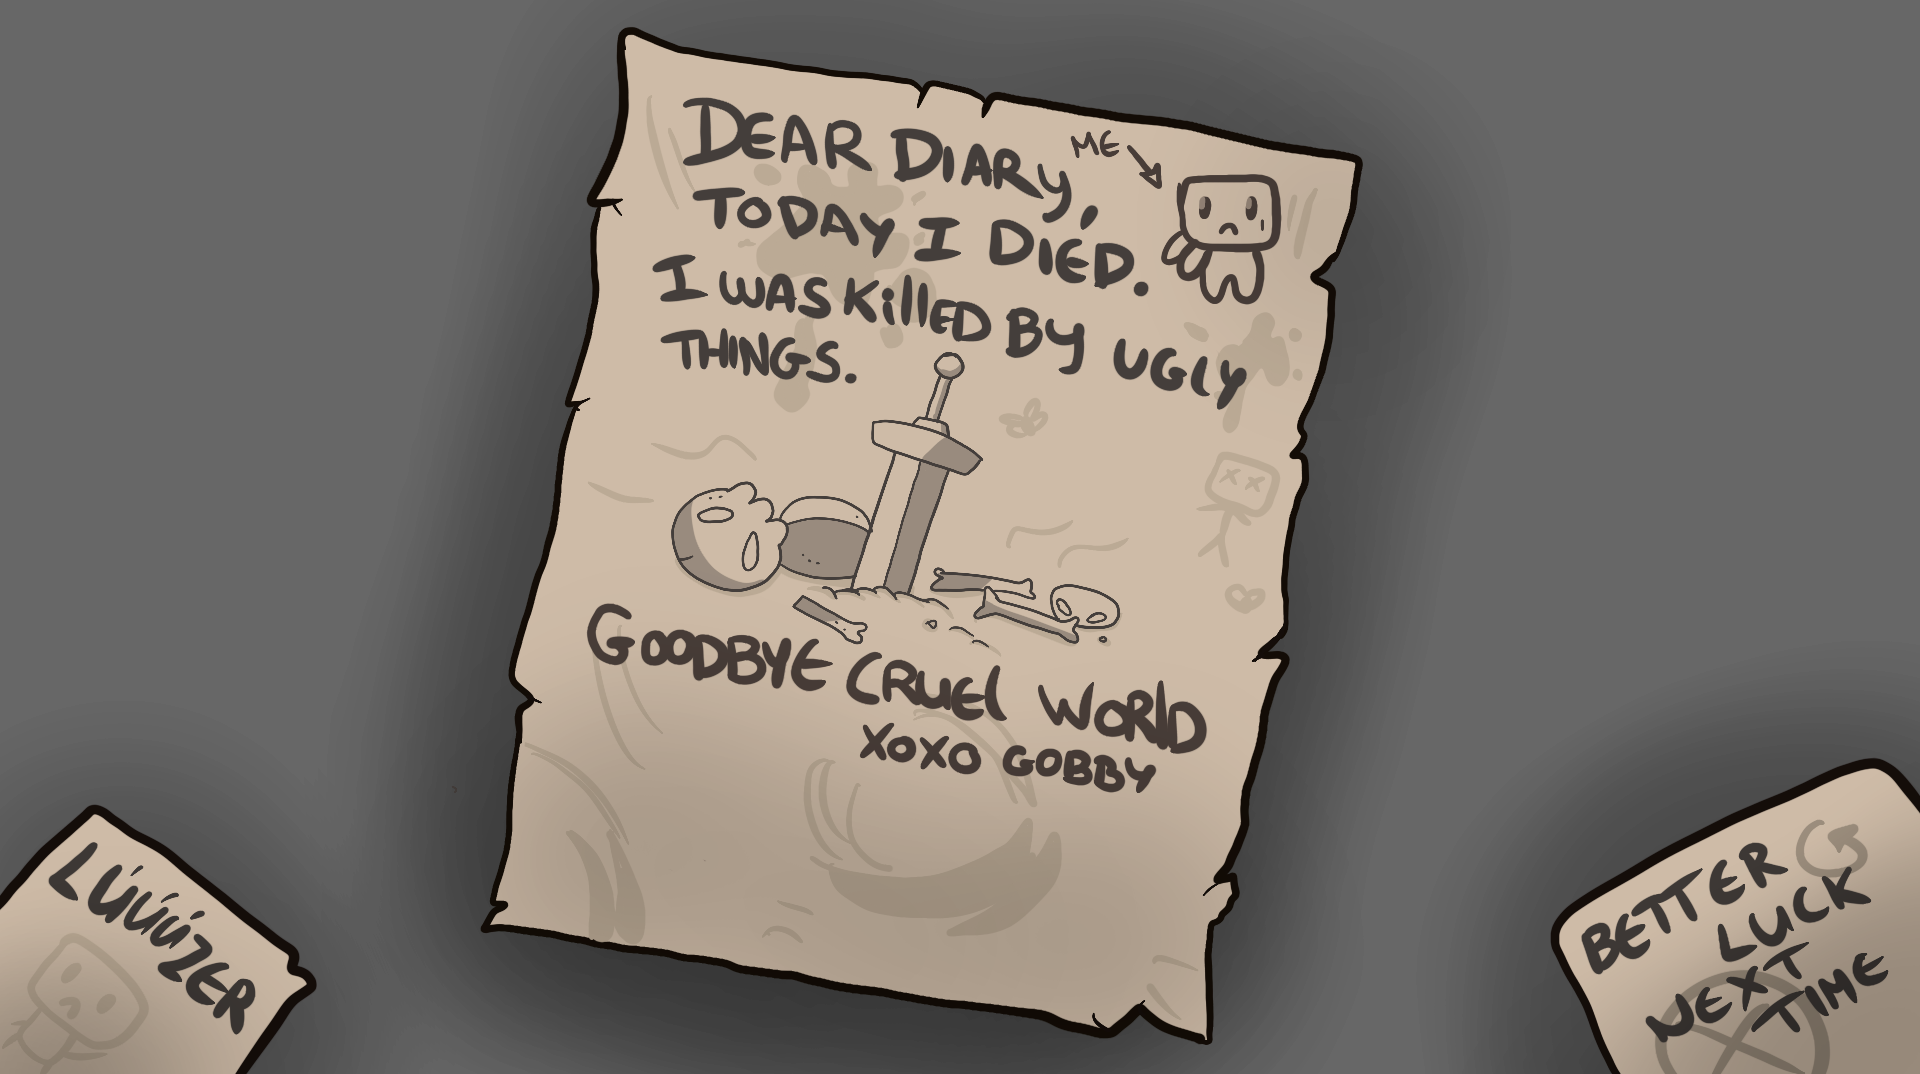 DEAR DIARY,
ME
TODAY I DIED.
I WAS KillED BY UGLY
THINGS.
GOODBYE CRUEl WORlD
XOXO GOBBY
LÚÚÚZER
BETTER
LUCK
NEXT
TIME